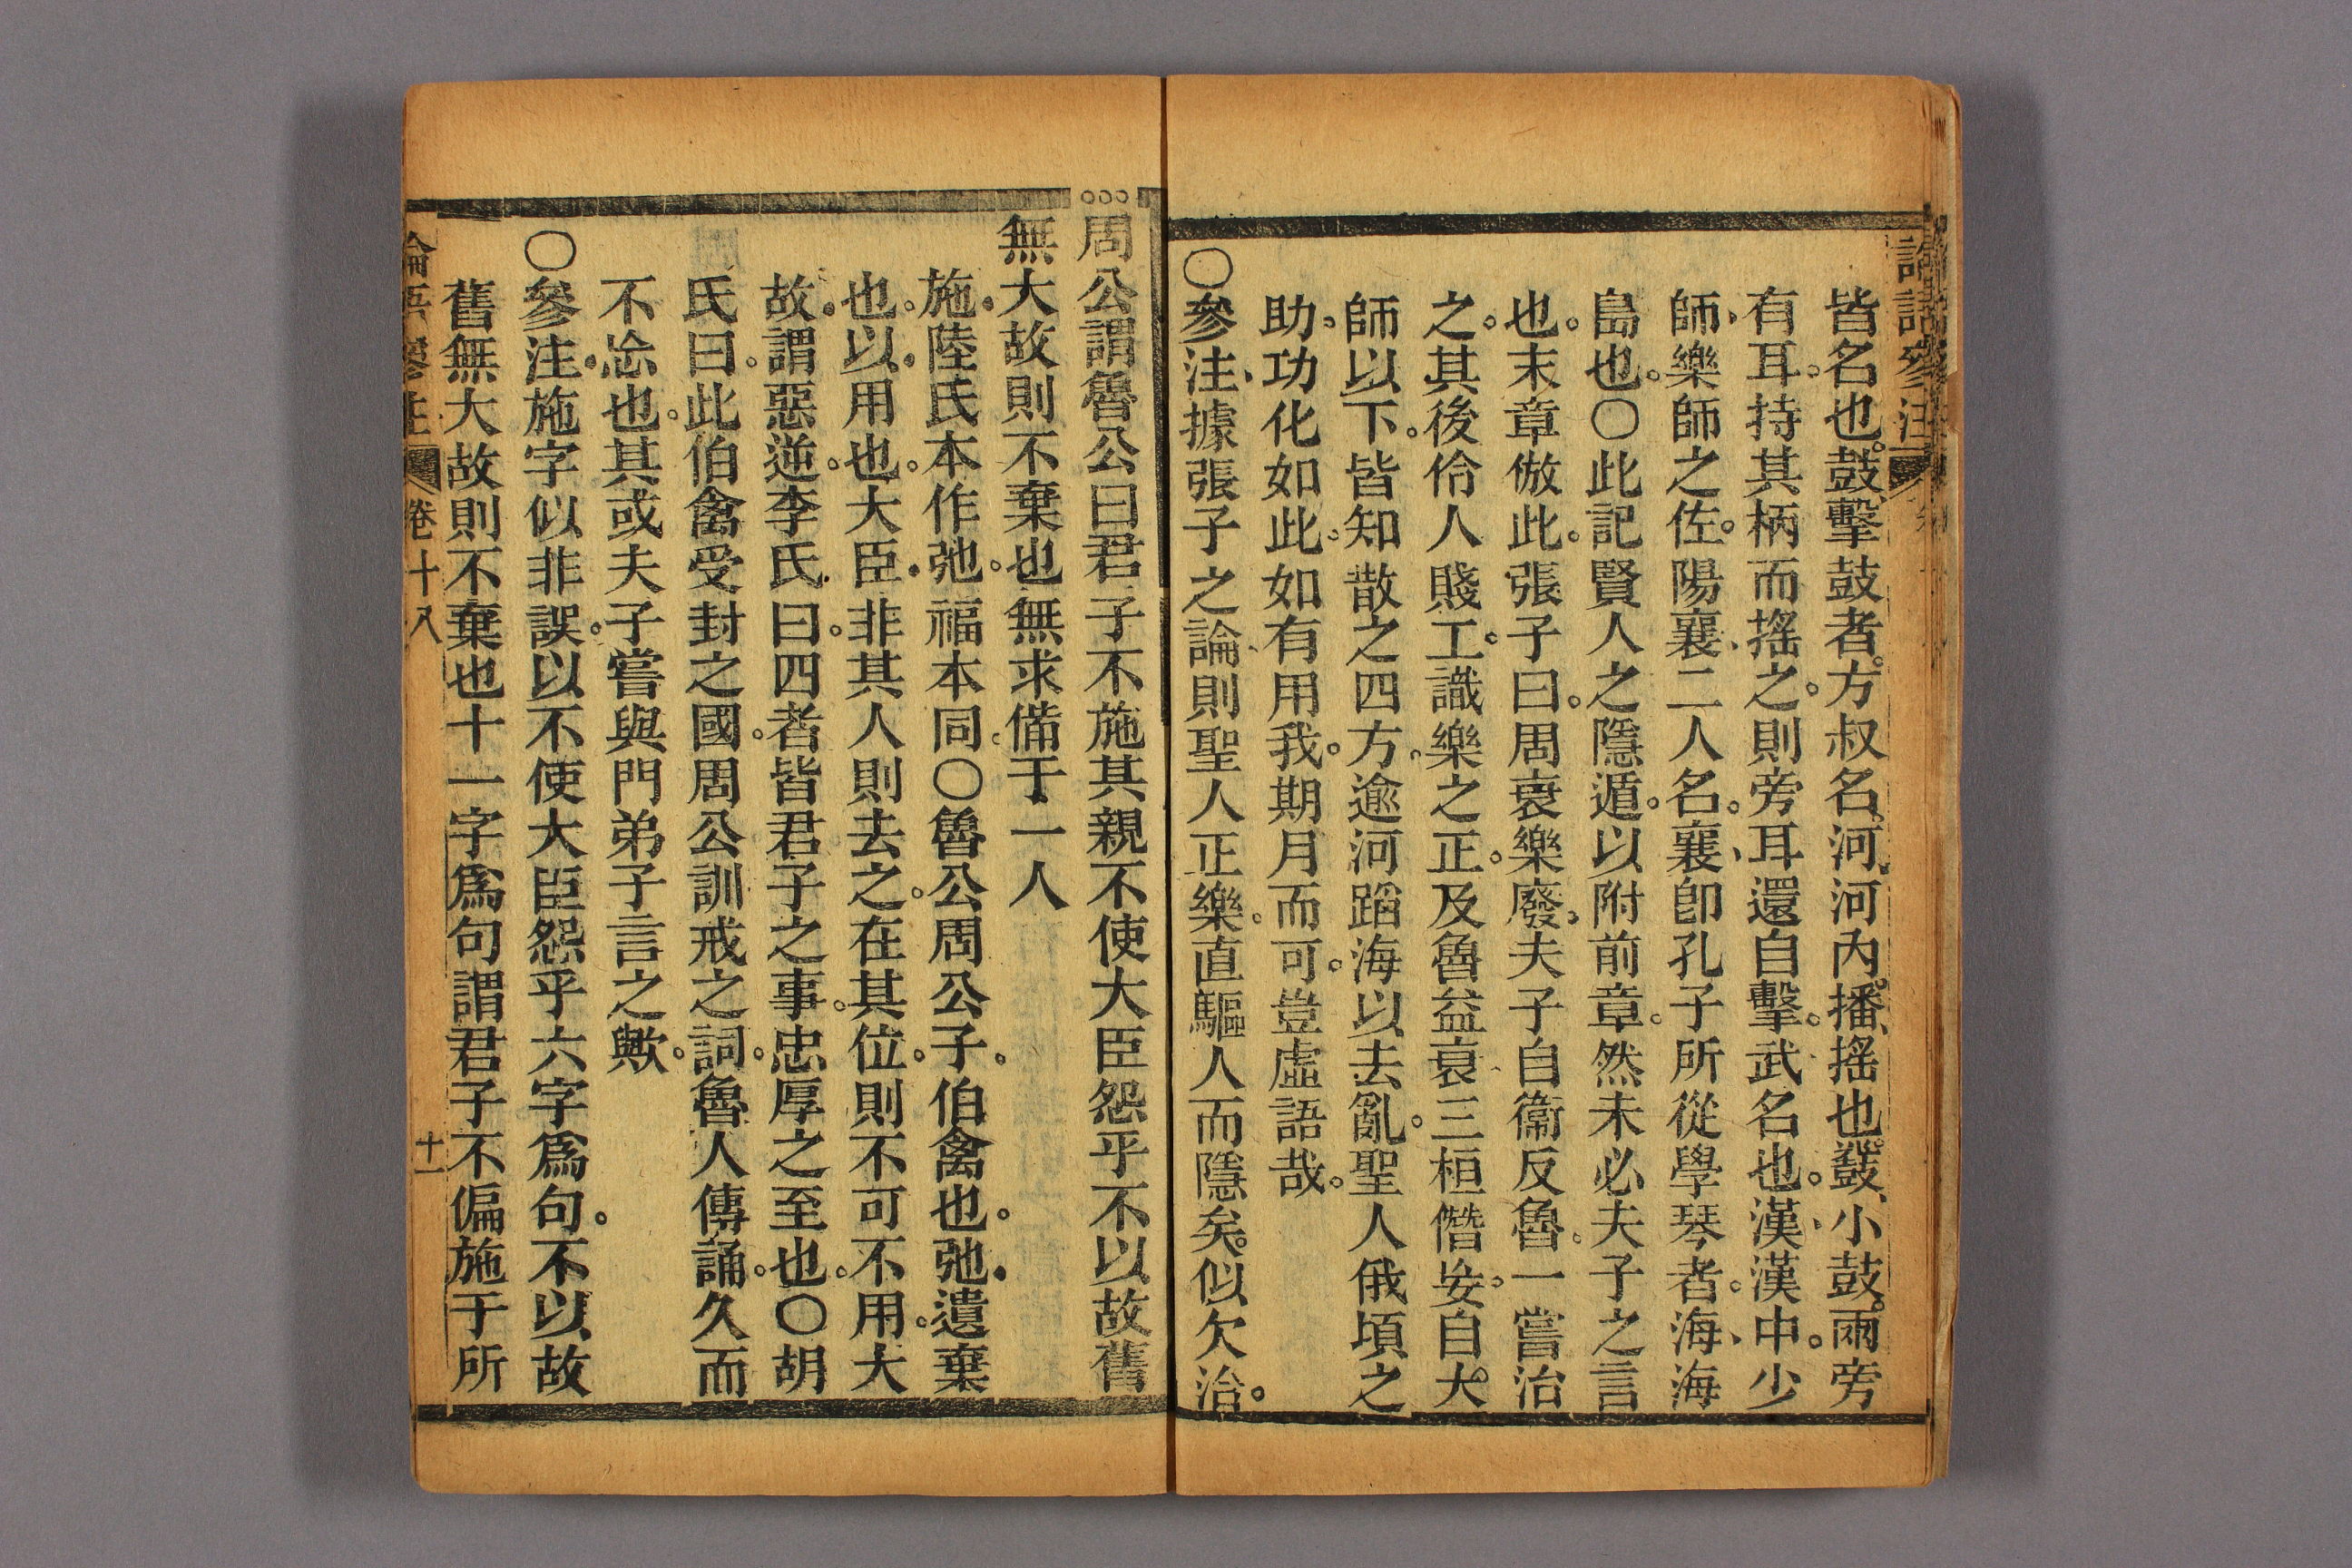 論語參注
皆名也。鼓、擊鼓者。方叔名。河、河內。播、搖也。鼗、小鼓。兩旁
有耳。持其柄而搖之。則旁耳還自擊。武名也。漢、漢中。少
師、樂師之佐。陽襄、二人名。襄、卽孔子所從學琴者。海、海
島也。〇此記賢人之隱遁。以附前章。然未必夫子之言
也。末章倣此。張子曰。周衰樂廢。夫子自衞反魯。一嘗治
之。其後伶人賤工。識樂之正。及魯益衰、三桓僭妄。自大
師以下。皆知散之四方。逾河蹈海以去亂。聖人俄頃之
助。功化如此。如有用我。期月而可。豈虛語哉。
〇參注、據張子之論、則聖人正樂。直驅人而隱矣。似欠治。
周公謂魯公曰君子不施其親不使大臣怨乎不以故舊
無大故則不棄也無求備于一人
施。陸氏本作弛。福本同。〇魯公周公子。伯禽也。弛。遺棄
也。以。用也。大臣。非其人則去之。在其位。則不可不用。大
故。謂惡逆。李氏曰。四者皆君子之事。忠厚之至也。〇胡
氏曰。此伯禽受封之國。周公訓戒之詞。魯人傳誦。久而
不忘也。其或夫子嘗與門弟子言之歟。
〇參注。施字似非誤。以不使大臣怨乎六字爲句。不以故
舊無大故則不棄也十一字爲句謂君子不偏施于所
論吾參注 卷十八 十一